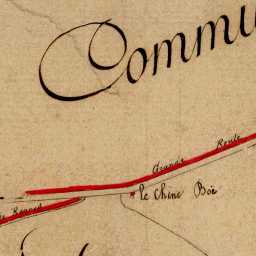 Commu
Grande Route
le Chêne Boé
de Rennes